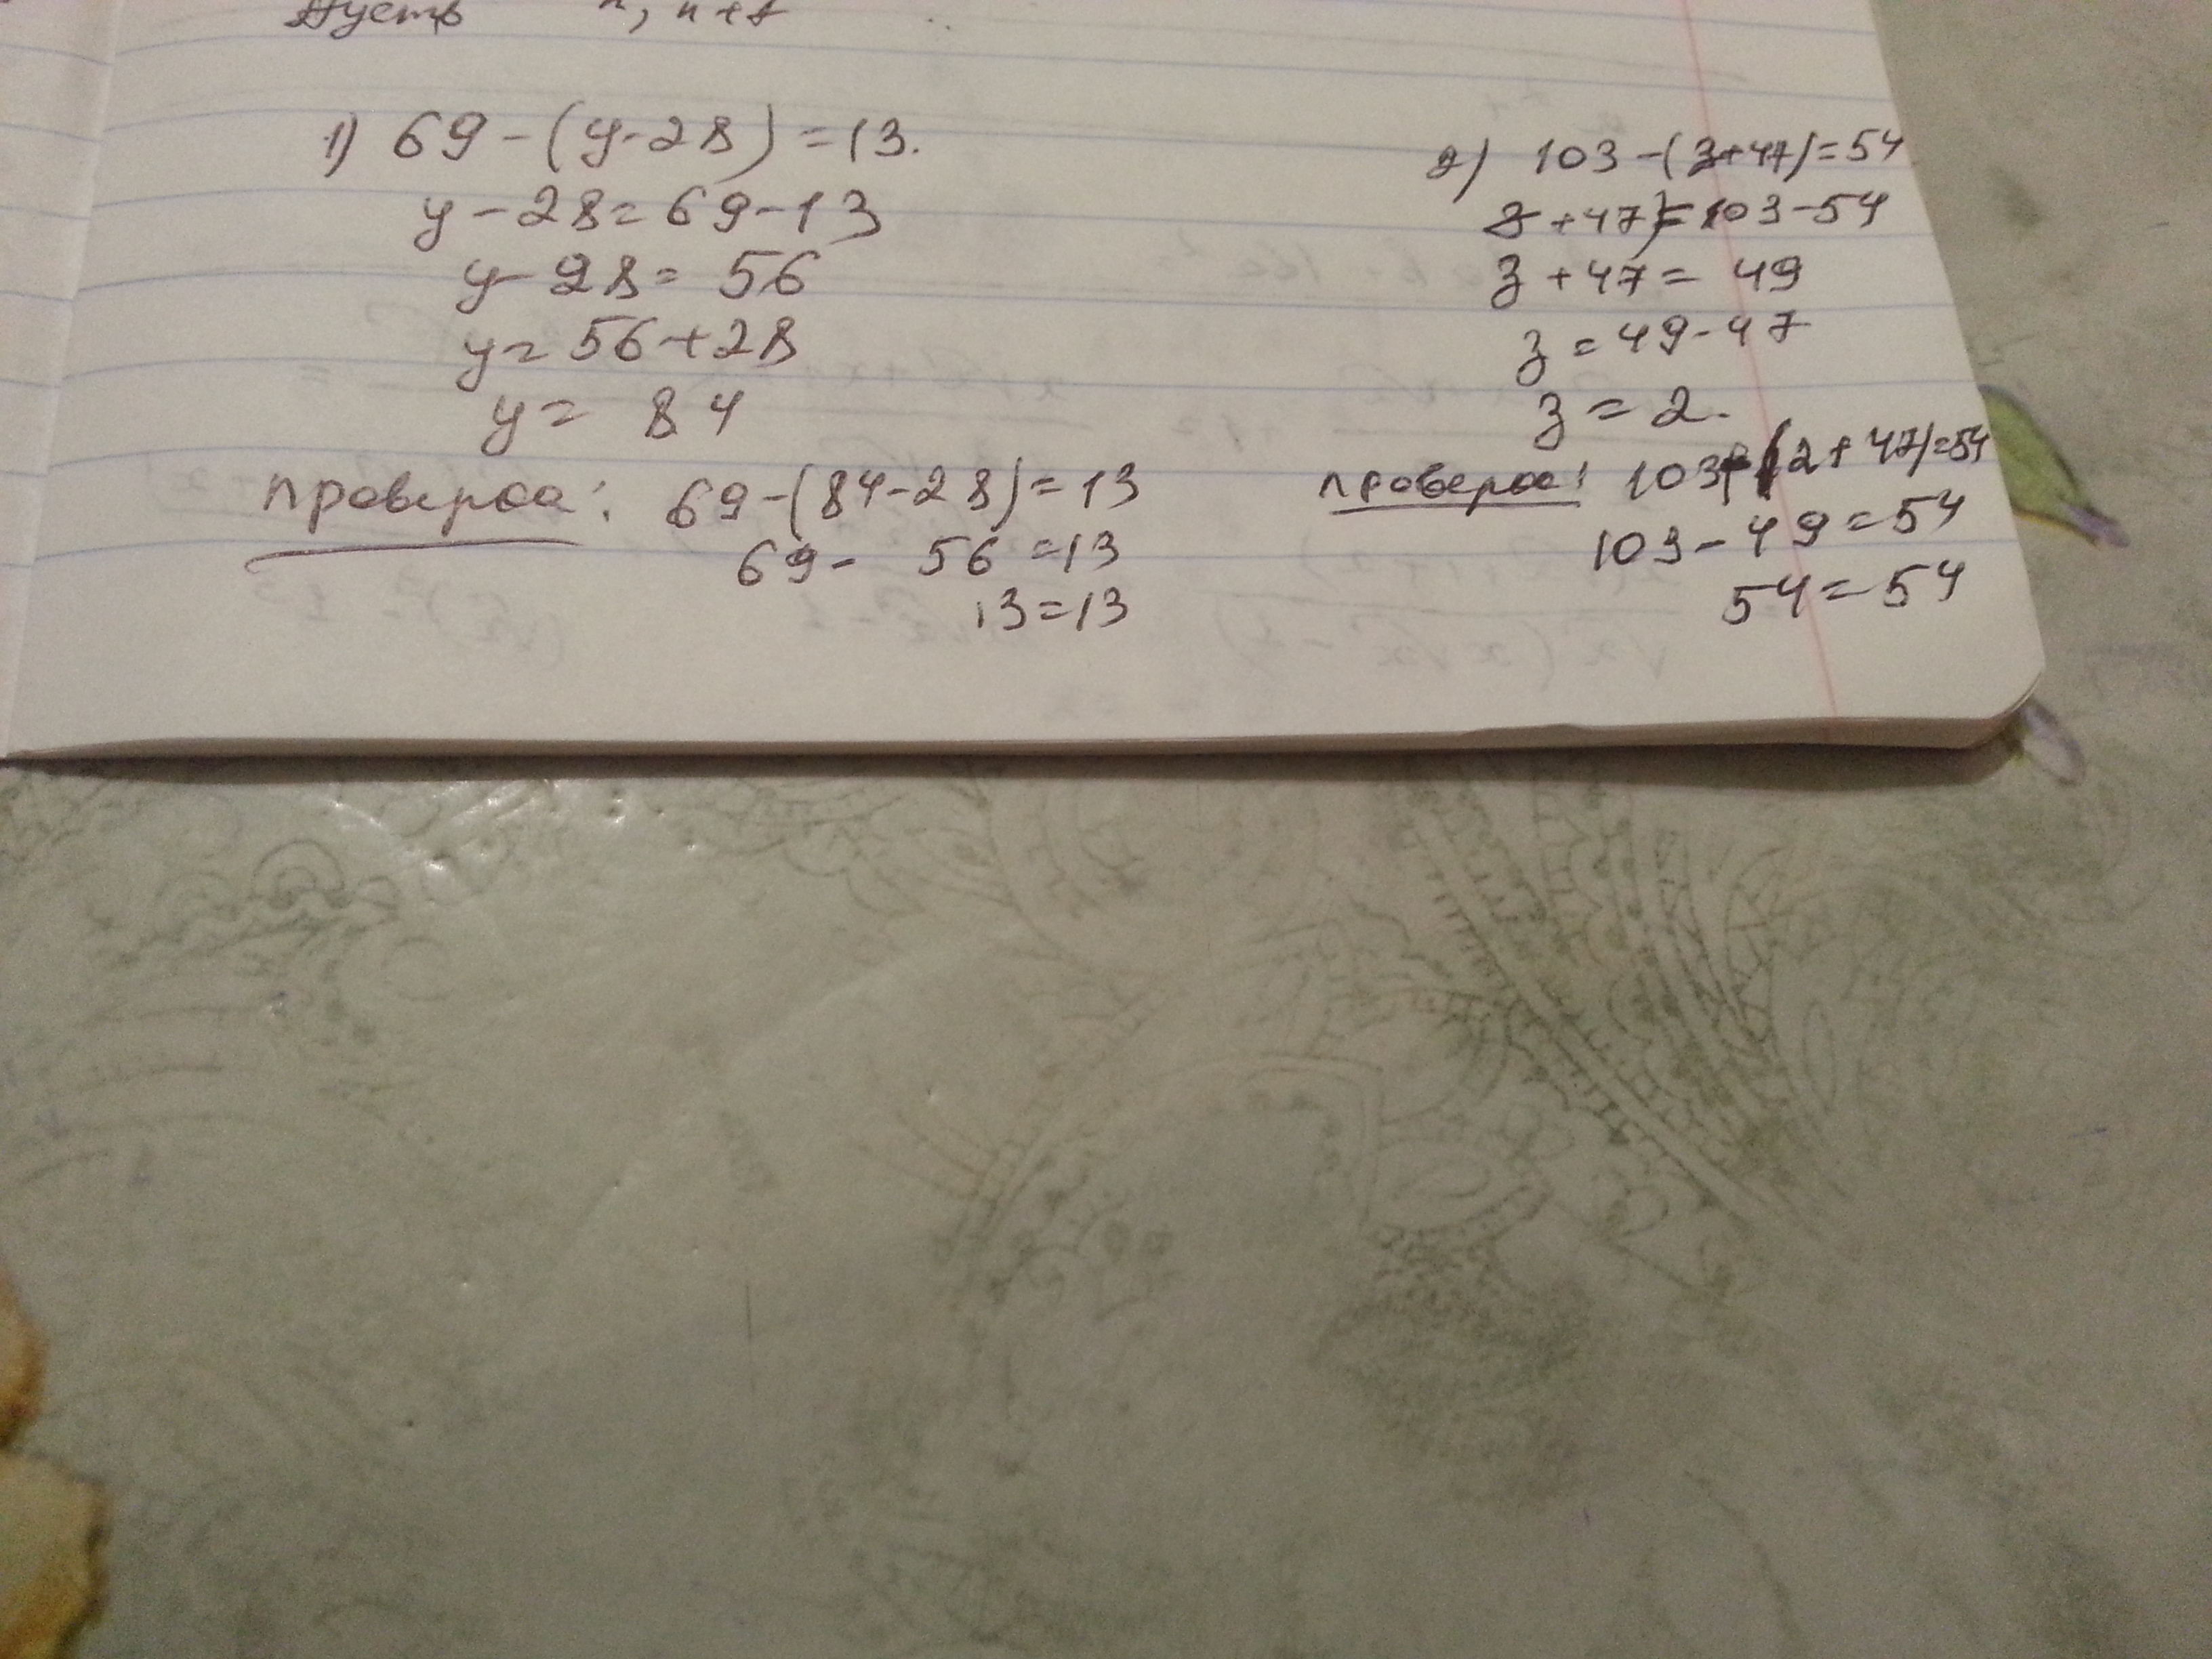 Пусть n, n+1
1) 69-(y-28)=13.
y-28=69-13
y-28=56
y=56+28
y=84
проверка: 69-(84-28)=13
69-56=13
13=13
2) 103-(z+47)=54
z+47)=103-54
z+47=49
z=49-47
z=2.
проверка: 103-(2+47)=54
103-49=54
54=54